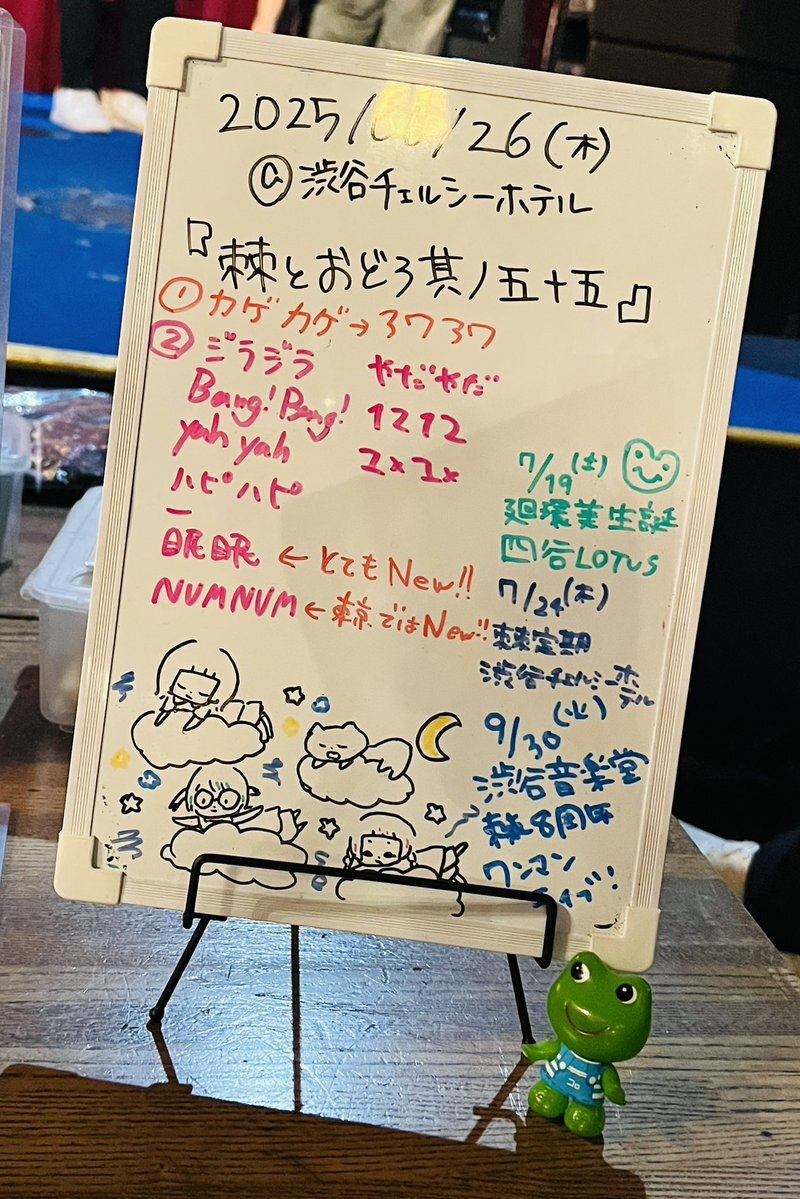 2025/ /26(木)
@渋谷チェルシーホテル
『棘とおどろ其ノ五十五』
①カゲカゲ→ヨワヨワ
②ジラジラ
Bang!Bang!
yah yah
ハピハピ
眠眠 ←とてもNew!!
NUMNUM←東京ではNew!!
やだやだ
1212
7/19(土)
廻環美生誕
四谷LOTUS
7/24(木)
棘定期
渋谷チェルシーホテル
9/30(火)
渋谷音楽堂
棘8周年
ワンマン
ライブ!
コロ